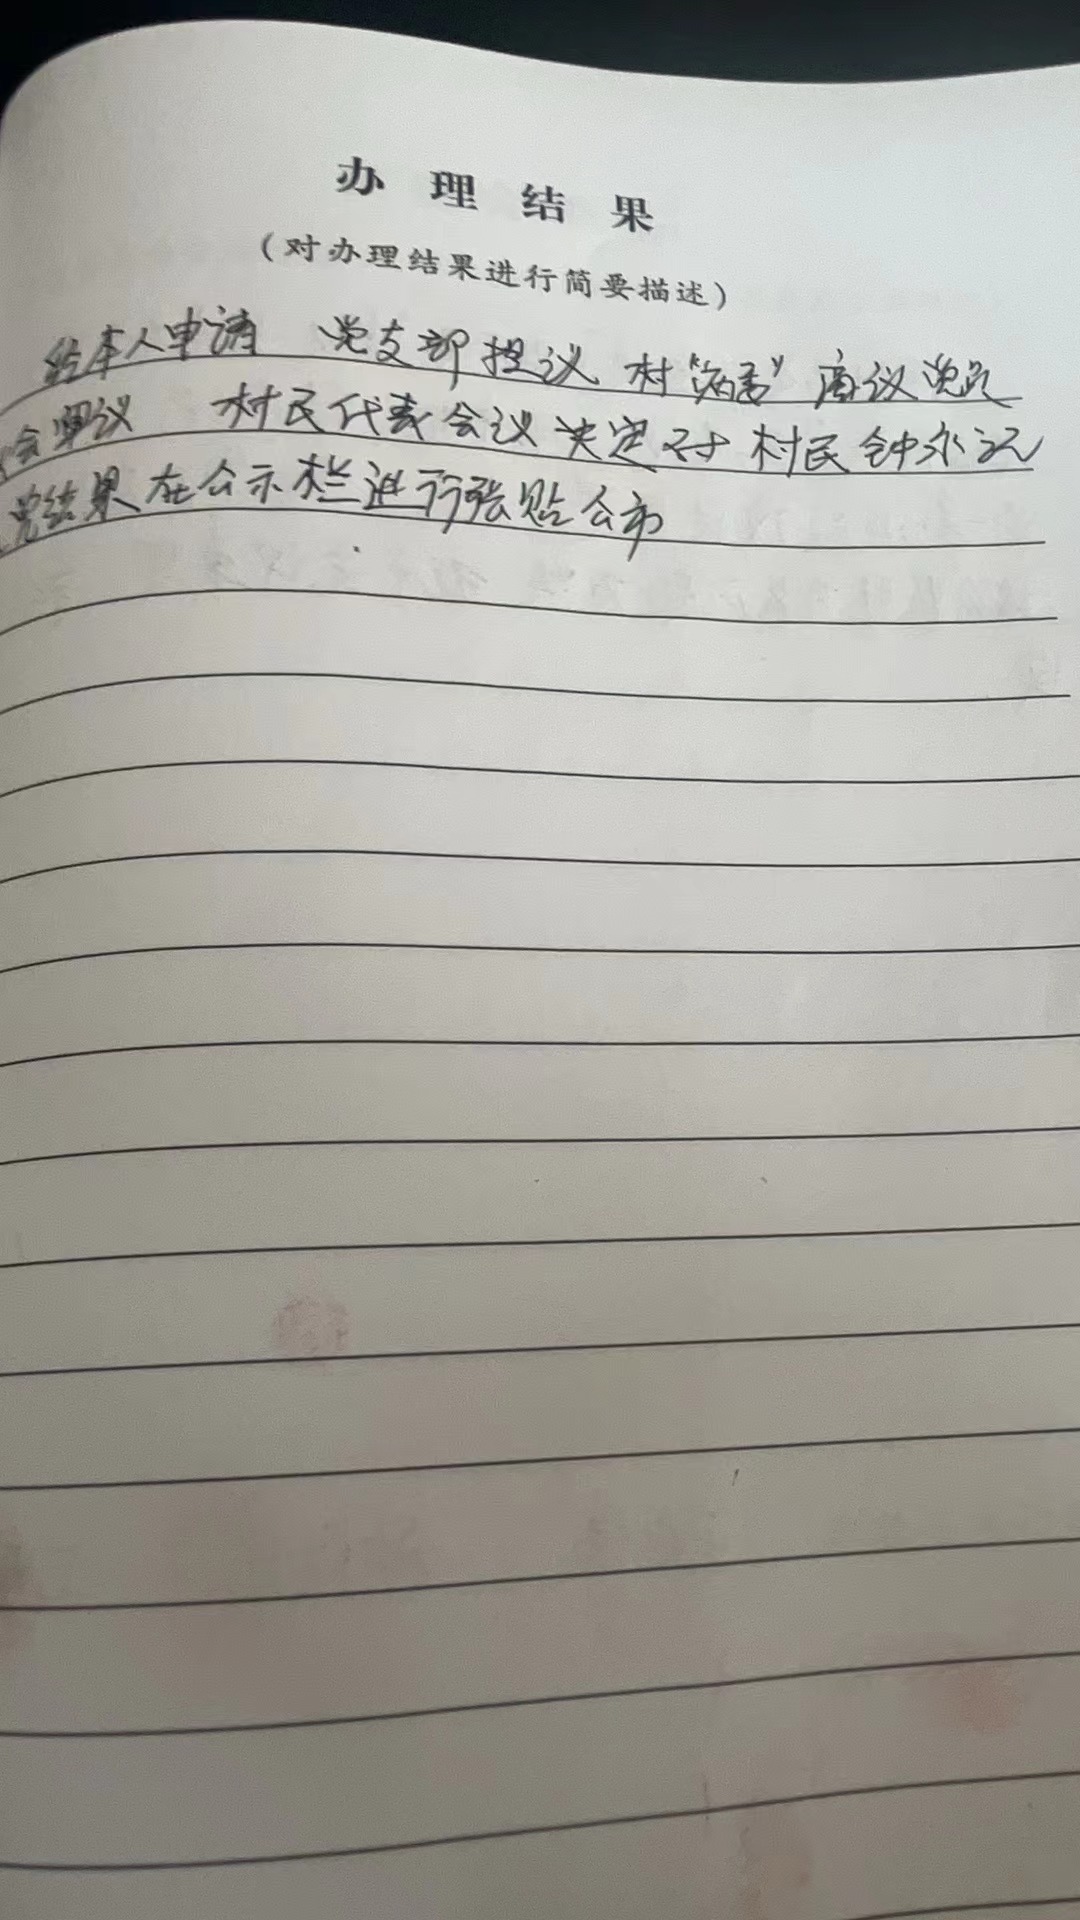 办理结果
（对办理结果进行简要描述）
经本人申请 党支部提议 村“两委”商议党员
会审议 村民代表会议决定对村民钟永远
结果在公示栏进行张贴公布